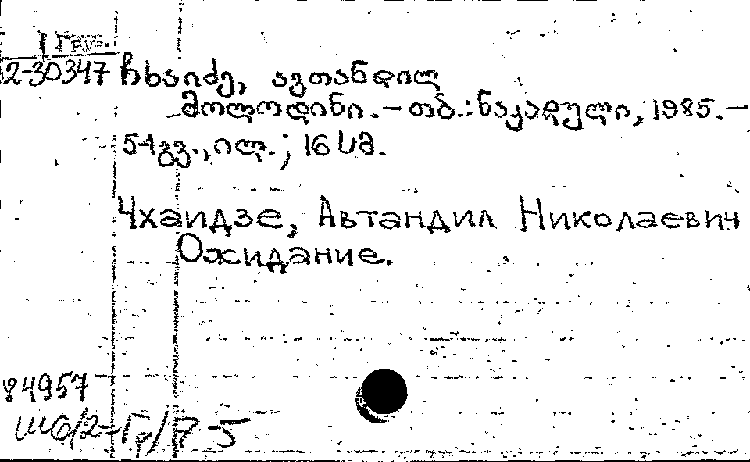 Груз.
2-30347 ჩხაიძე, ავთანდილ
მოლოდინი. – თბ.: ნაკადული, 1985. –
54გვ., ილ.; 16 სმ.
Чхаидзе, Автандил Николаевич
Ожидание.
84957